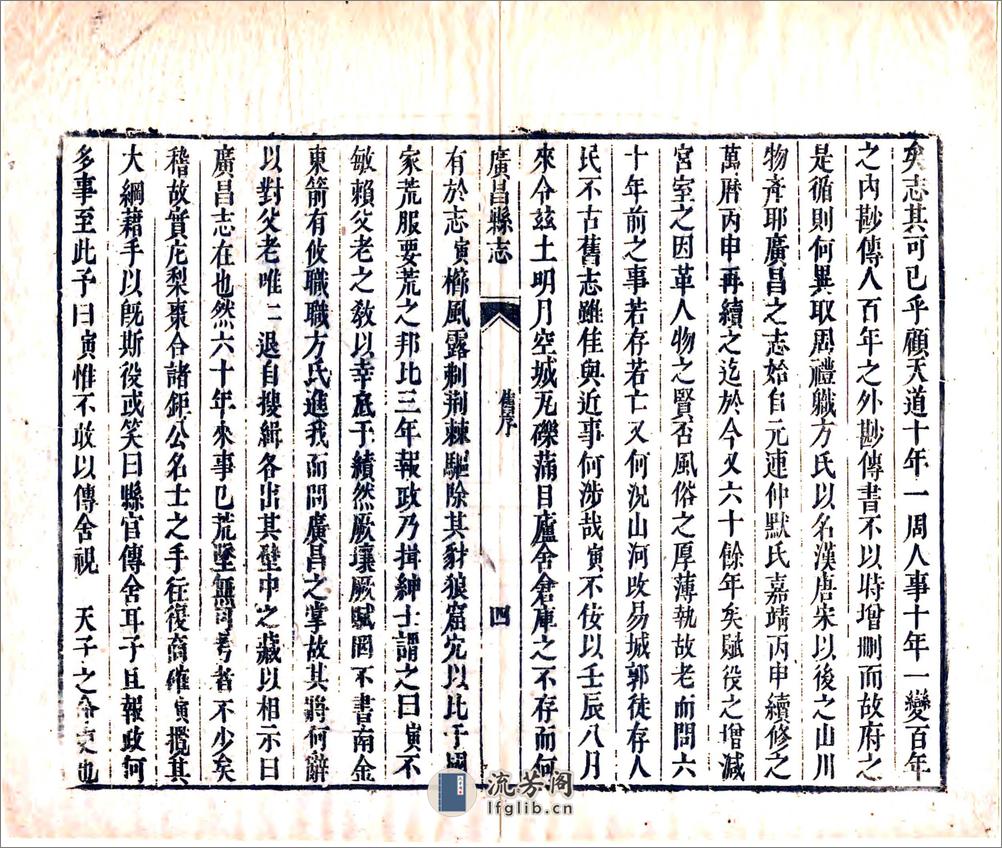 矣志其可已乎顧天道十年一周人事十年一變百年
之內尠傳人百年之外尠傳書不以時增刪而故府之
是循則何異取周禮職方氏以名漢唐宋以後之山川
物產耶廣昌之志始自元連仲默氏嘉靖丙申續修之
萬曆丙申再續之迄於今又六十餘年矣賦役之增減
宮室之因革人物之賢否風俗之厚薄執故老而問六
十年前之事若存若亡又何況山河改易城郭徒存人
民不古舊志雖佳與近事何涉哉寅不佞以壬辰八月
來令茲土明月空城瓦礫滿目廬舍倉庫之不存而何
廣昌縣志
舊序
四
有於志寅櫛風露剌荆棘驅除其豺狼窟宂以比于國
家荒服要荒之邦比三年報政乃揖紳士謂之曰寅不
敏賴父老之敎以幸底于績然厥壤厥賦罔不書南金
東箭有攸職職方氏進我而問廣昌之掌故其將何辭
以對父老唯二退自搜緝各出其壁中之藏以相示曰
廣昌志在也然六十年來事已荒墜無可考者不少矣
稽故實庀梨棗合諸鉅公名士之手往復商確寅攬其
大綱藉手以旣斯役或笑曰縣官傳舍耳子且報政何
多事至此予曰寅惟不敢以傳舍視　天子之命吏也
流芳阁
lfglib.cn